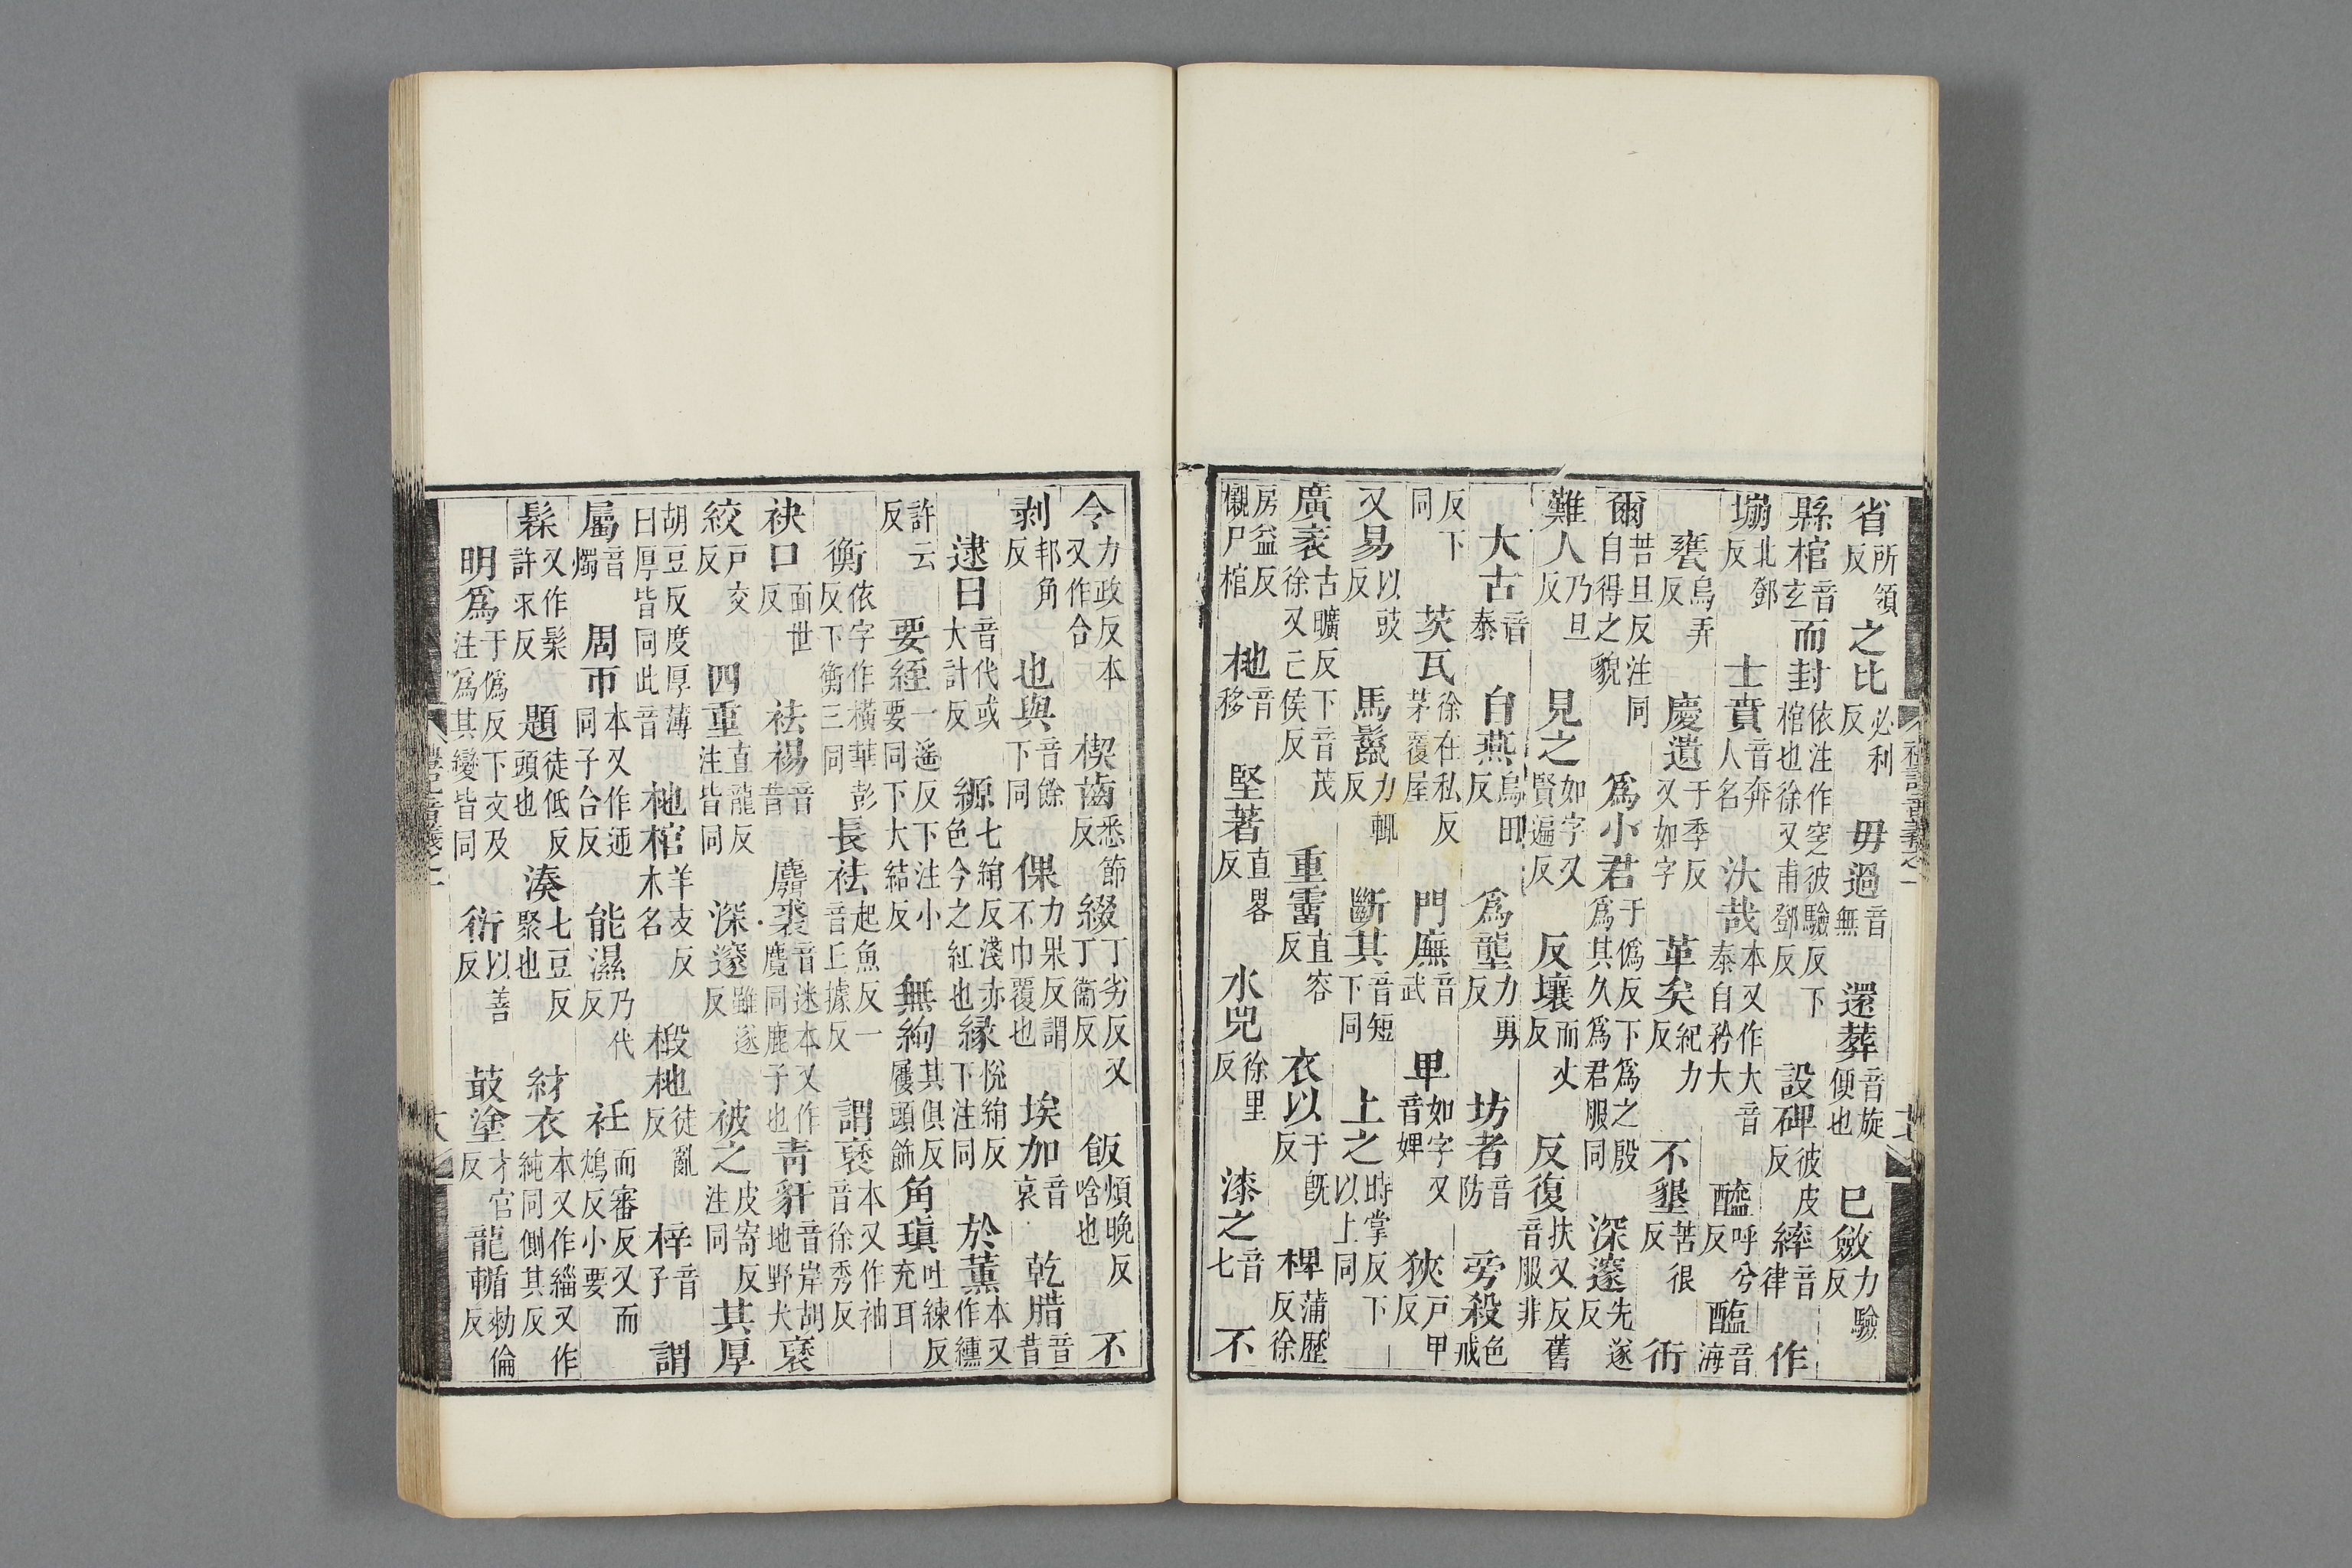 禮記音義之一
省所領反之比必利反毋過音無還葬音旋便也已斂力驗反
縣棺音玄而封依注作窆彼驗反下棺也徐又甫鄧反設碑彼皮反繂音律作
堋北鄧反士賁音奔人名汰哉本又作大音泰自矜大醯呼兮反醢音海
甕烏弄反慶遺于季反又如字革矣紀力反不墾苦很反衎
爾苦旦反注同自得之貌為小君于偽反下為之殷為其久為君服同深邃先遂反
難人乃旦反見之如字又賢遍反反壤而丈反反復扶又反舊音服非
大古音泰白燕烏田反為壟力勇反坊者音防旁殺色戒
反下同茨瓦徐在私反茅覆屋門廡音武卑如字又音婢狹戶甲反
又易以豉反馬鬛力輒反斷其音短下同上之時掌反下以上同
廣袤古曠反下音茂徐又亡侯反重霤直容反衣以于旣反椑蒲歷反徐
房益反櫬尸棺杝音移堅著直畧反水兕徐里反漆之音七不
令力政反本又作合楔齒悉節反綴丁劣反又丁衞反飯煩晚反唅也不
剥邦角反也與音餘下同倮力果反謂不巾覆也埃加音哀乾腊音昔
逮日音代或大計反縓七絹反淺赤色今之紅也緣悅絹反下注同於薰本又作纁
許云反要絰一遙反下注小要同下大結反無絇其俱反屨頭飾角瑱吐練反充耳
衡依字作橫華彭反下衡三同長袪起魚反一音丘據反謂褎本又作袖音徐秀反
袂口面世反袪裼音昔麛裘音迷本又作麑同鹿子也青豻音岸胡地野犬褎
絞戶交反四重直龍反注皆同深邃雖遂反被之皮寄反注同其厚
胡豆反度厚薄曰厚皆同此音杝棺羊支反木名椴杝徒亂反梓音子謂
屬音燭周帀本又作迊同子合反能濕乃代反衽而審反又而鴆反小要
髹又作髤許求反題徒低反頭也湊七豆反聚也紂衣本又作緇又作純同側其反
明為于偽反下文及注為其變皆同衍以善反菆塗才官反龍輴勑倫反